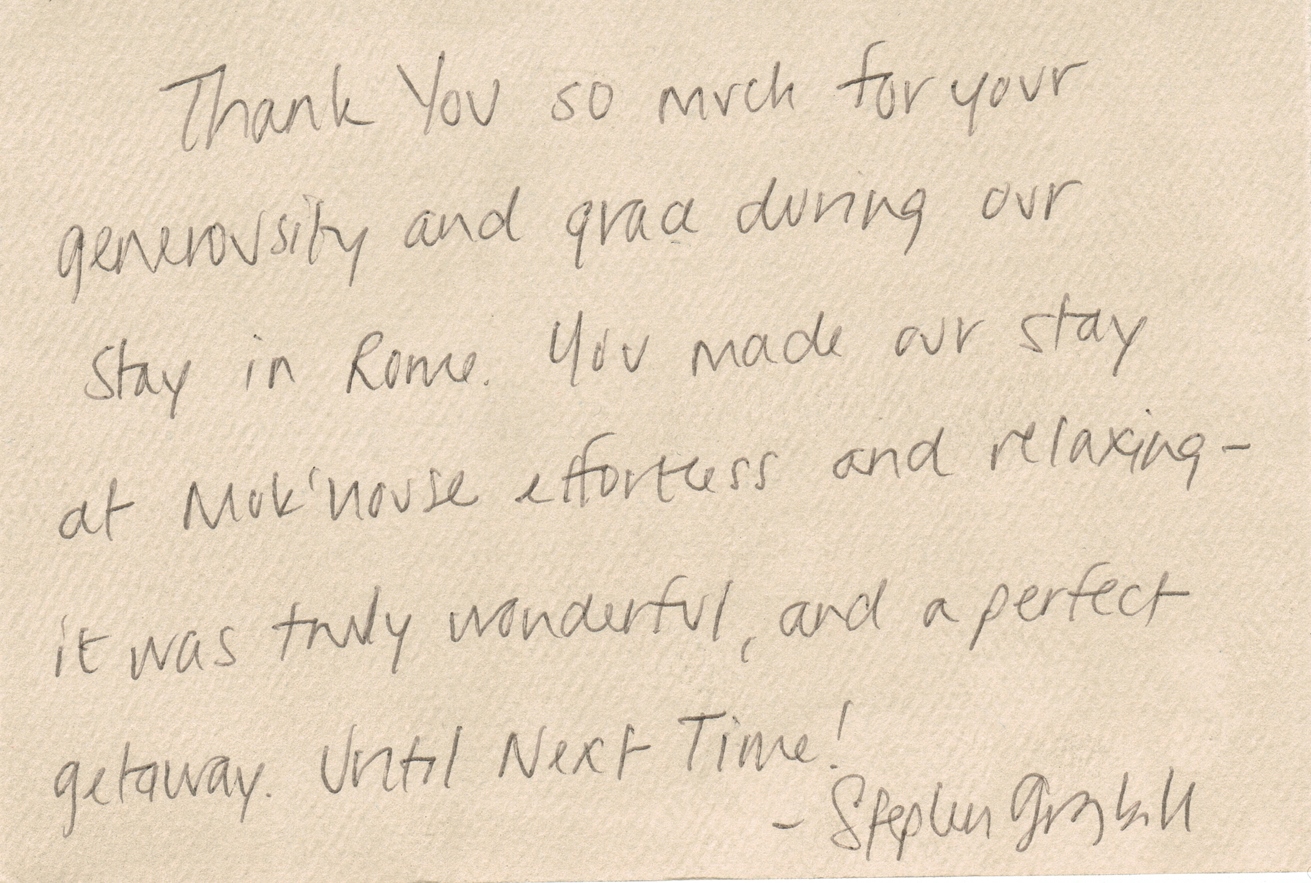 Thank You so much for your
generousity and grace during our
stay in Rome. You made our stay
at Mok'house effortless and relaxing -
it was truly wonderful, and a perfect
getaway. Until Next Time!
- Stephen Graybill